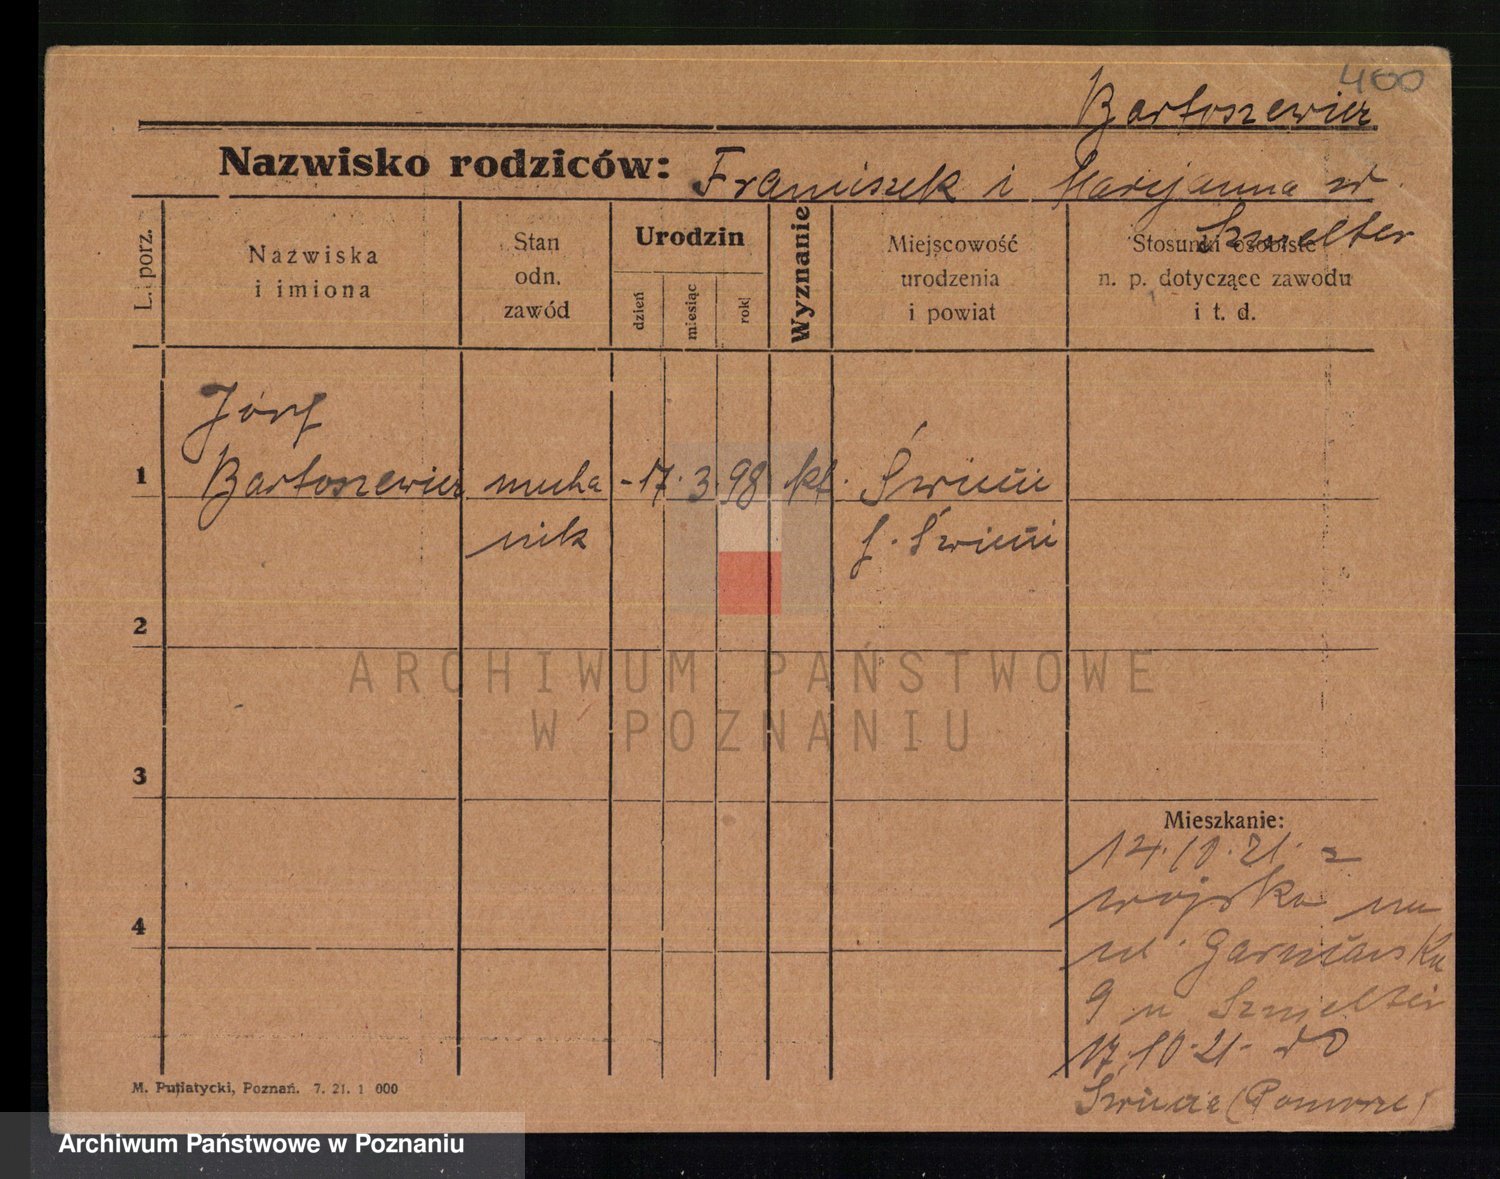 400
Bartoszewicz
Nazwisko rodziców: Franciszek i Maryjanna z d.
Szmelter
L. porz.
Nazwiska
i imiona
Stan
odn.
zawód
Urodzin
dzień
miesiąc
rok
Wyznanie
Miejscowość
urodzenia
i powiat
Stosunki osobiste
n. p. dotyczące zawodu
i t. d.
Józef
1 Bartoszewicz mecha - 17. 3. 98 kt. Świecie
nik Świecie
2
3
Mieszkanie:
14.10.21. z
wojska na
4
ul. Garncarska
9 u Szmelter
17.10.21. do
Świecie (Pomorze)
M. Putiatycki, Poznań. 7. 21. 1 000
ARCHIWUM PAŃSTWOWE
W POZNANIU
Archiwum Państwowe w Poznaniu